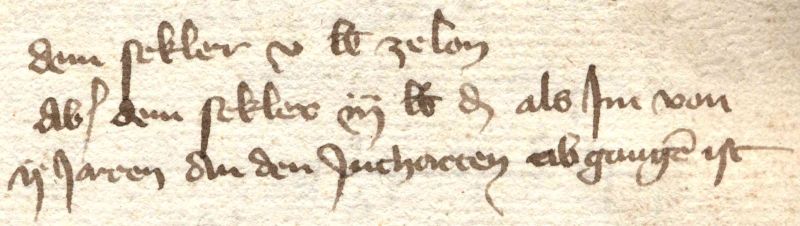 dem sekler v lb ze lon
Ab dem sekler iij lb d als Im von
ij Jarren an den Jucharten ab gangē ist